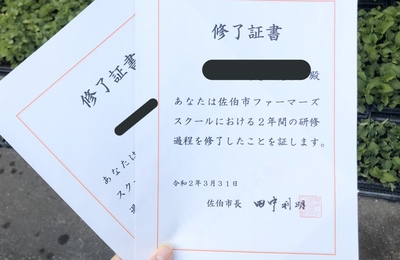 修了証書
殿
あなたは佐伯市ファーマーズ
スクールにおける2年間の研修
過程を修了したことを証します。
令和2年3月31日
佐伯市長 田中利明
修了証書
あなたは
スクール